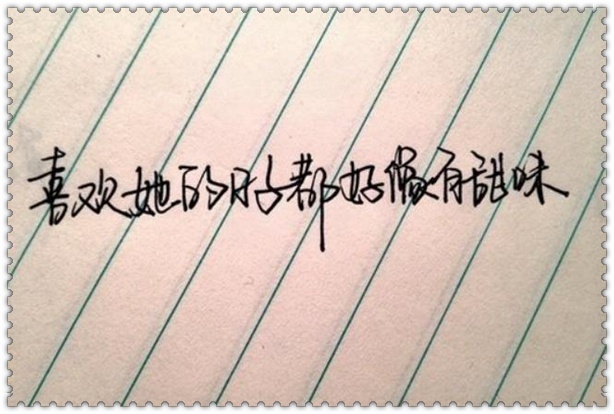 喜欢她的日子都好像有甜味